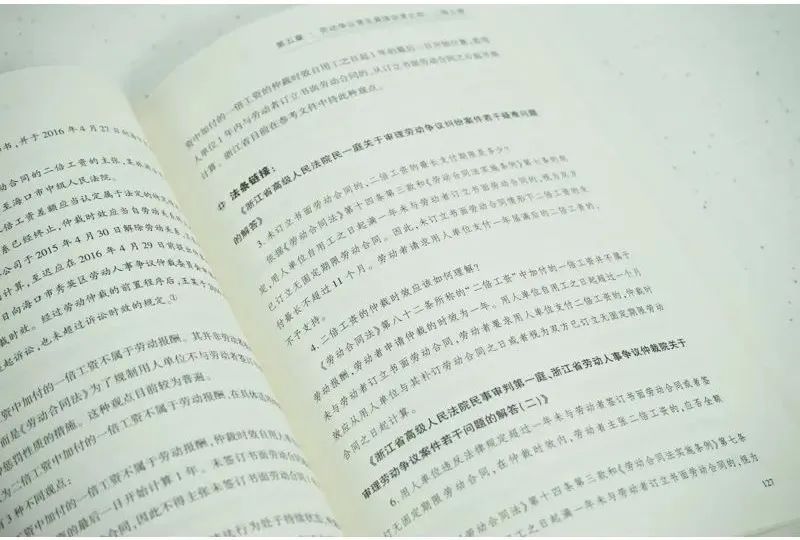 书，并于 2016 年 4 月 27 日
动合同的二倍工资的主张，
至海口市中级人民法院。
二倍工资差额应当认定属于法定的
系已经终止，仲裁时效应当自劳动关
公司于 2015 年 4 月 30 日解除劳动关系，
计算，至迟应在 2016 年 4 月 29 日前
日向海口市秀英区劳动人事争议仲裁委员
裁时效。经过劳动仲裁的前置程序后，王某
起诉讼，也未超过诉讼时效的规定。①
资中加付的一倍工资不属于劳动报酬，其并非劳动
而是《劳动合同法》为了规制用人单位不与劳动者签
惩罚性质的措施。这种观点目前较为普遍。
为二倍工资中加付的一倍工资不属于劳动报酬，仲裁时效自用人
有 3 种不同观点：
资中加付的最后一日开始计算 1 年。未签订书面劳动合
动合同，因此不得主张未签订书面劳动合同
违法行为处于持续状态，
第五章 劳动争议常见
资中加付的一倍工资的仲裁时效自用工之日起 1 年的最后一日开始计算，若用
人单位 1 年内与劳动者订立书面劳动合同的，从订立书面劳动合同之日起开始
计算。浙江省目前在参考文件中持此种观点。
法条链接：
《浙江省高级人民法院民一庭关于审理劳动争议纠纷案件若干疑难问题
的解答》
3. 未订立书面劳动合同的，二倍工资的最长支付期限是多少？
依据《劳动合同法》第十四条第三款和《劳动合同法实施条例》第七条的规
定，用人单位自用工之日起满一年未与劳动者订立书面劳动合同的，视为双方
已订立无固定期限劳动合同。因此，未订立书面劳动合同情形下二倍工资的支
付最长不超过 11 个月。劳动者请求用人单位支付一年届满后的二倍工资的，
不予支持。
4. 二倍工资的仲裁时效应该如何理解？
《劳动合同法》第八十二条所称的“二倍工资”中加付的一倍工资并不属于
劳动报酬，劳动者申请仲裁的时效为一年。用人单位自用工之日起超过一个月
未与劳动者订立书面劳动合同，劳动者要求用人单位支付二倍工资的，仲裁时
效应从用人单位与其补订劳动合同之日或者视为双方已订立无固定期限劳动
合同之日起计算。
《浙江省高级人民法院民事审判第一庭、浙江省劳动人事争议仲裁院关于
审理劳动争议案件若干问题的解答（二）》
6. 用人单位违反法律规定超过一年未与劳动者签订书面劳动合同或者签
订无固定期限劳动合同，在仲裁时效内，劳动者主张二倍工资的，应否全额
《劳动合同法》第十四条第三款和《劳动合同法实施条例》第七条
用工之日起满一年未与劳动者订立书面劳动合同的，视为
127